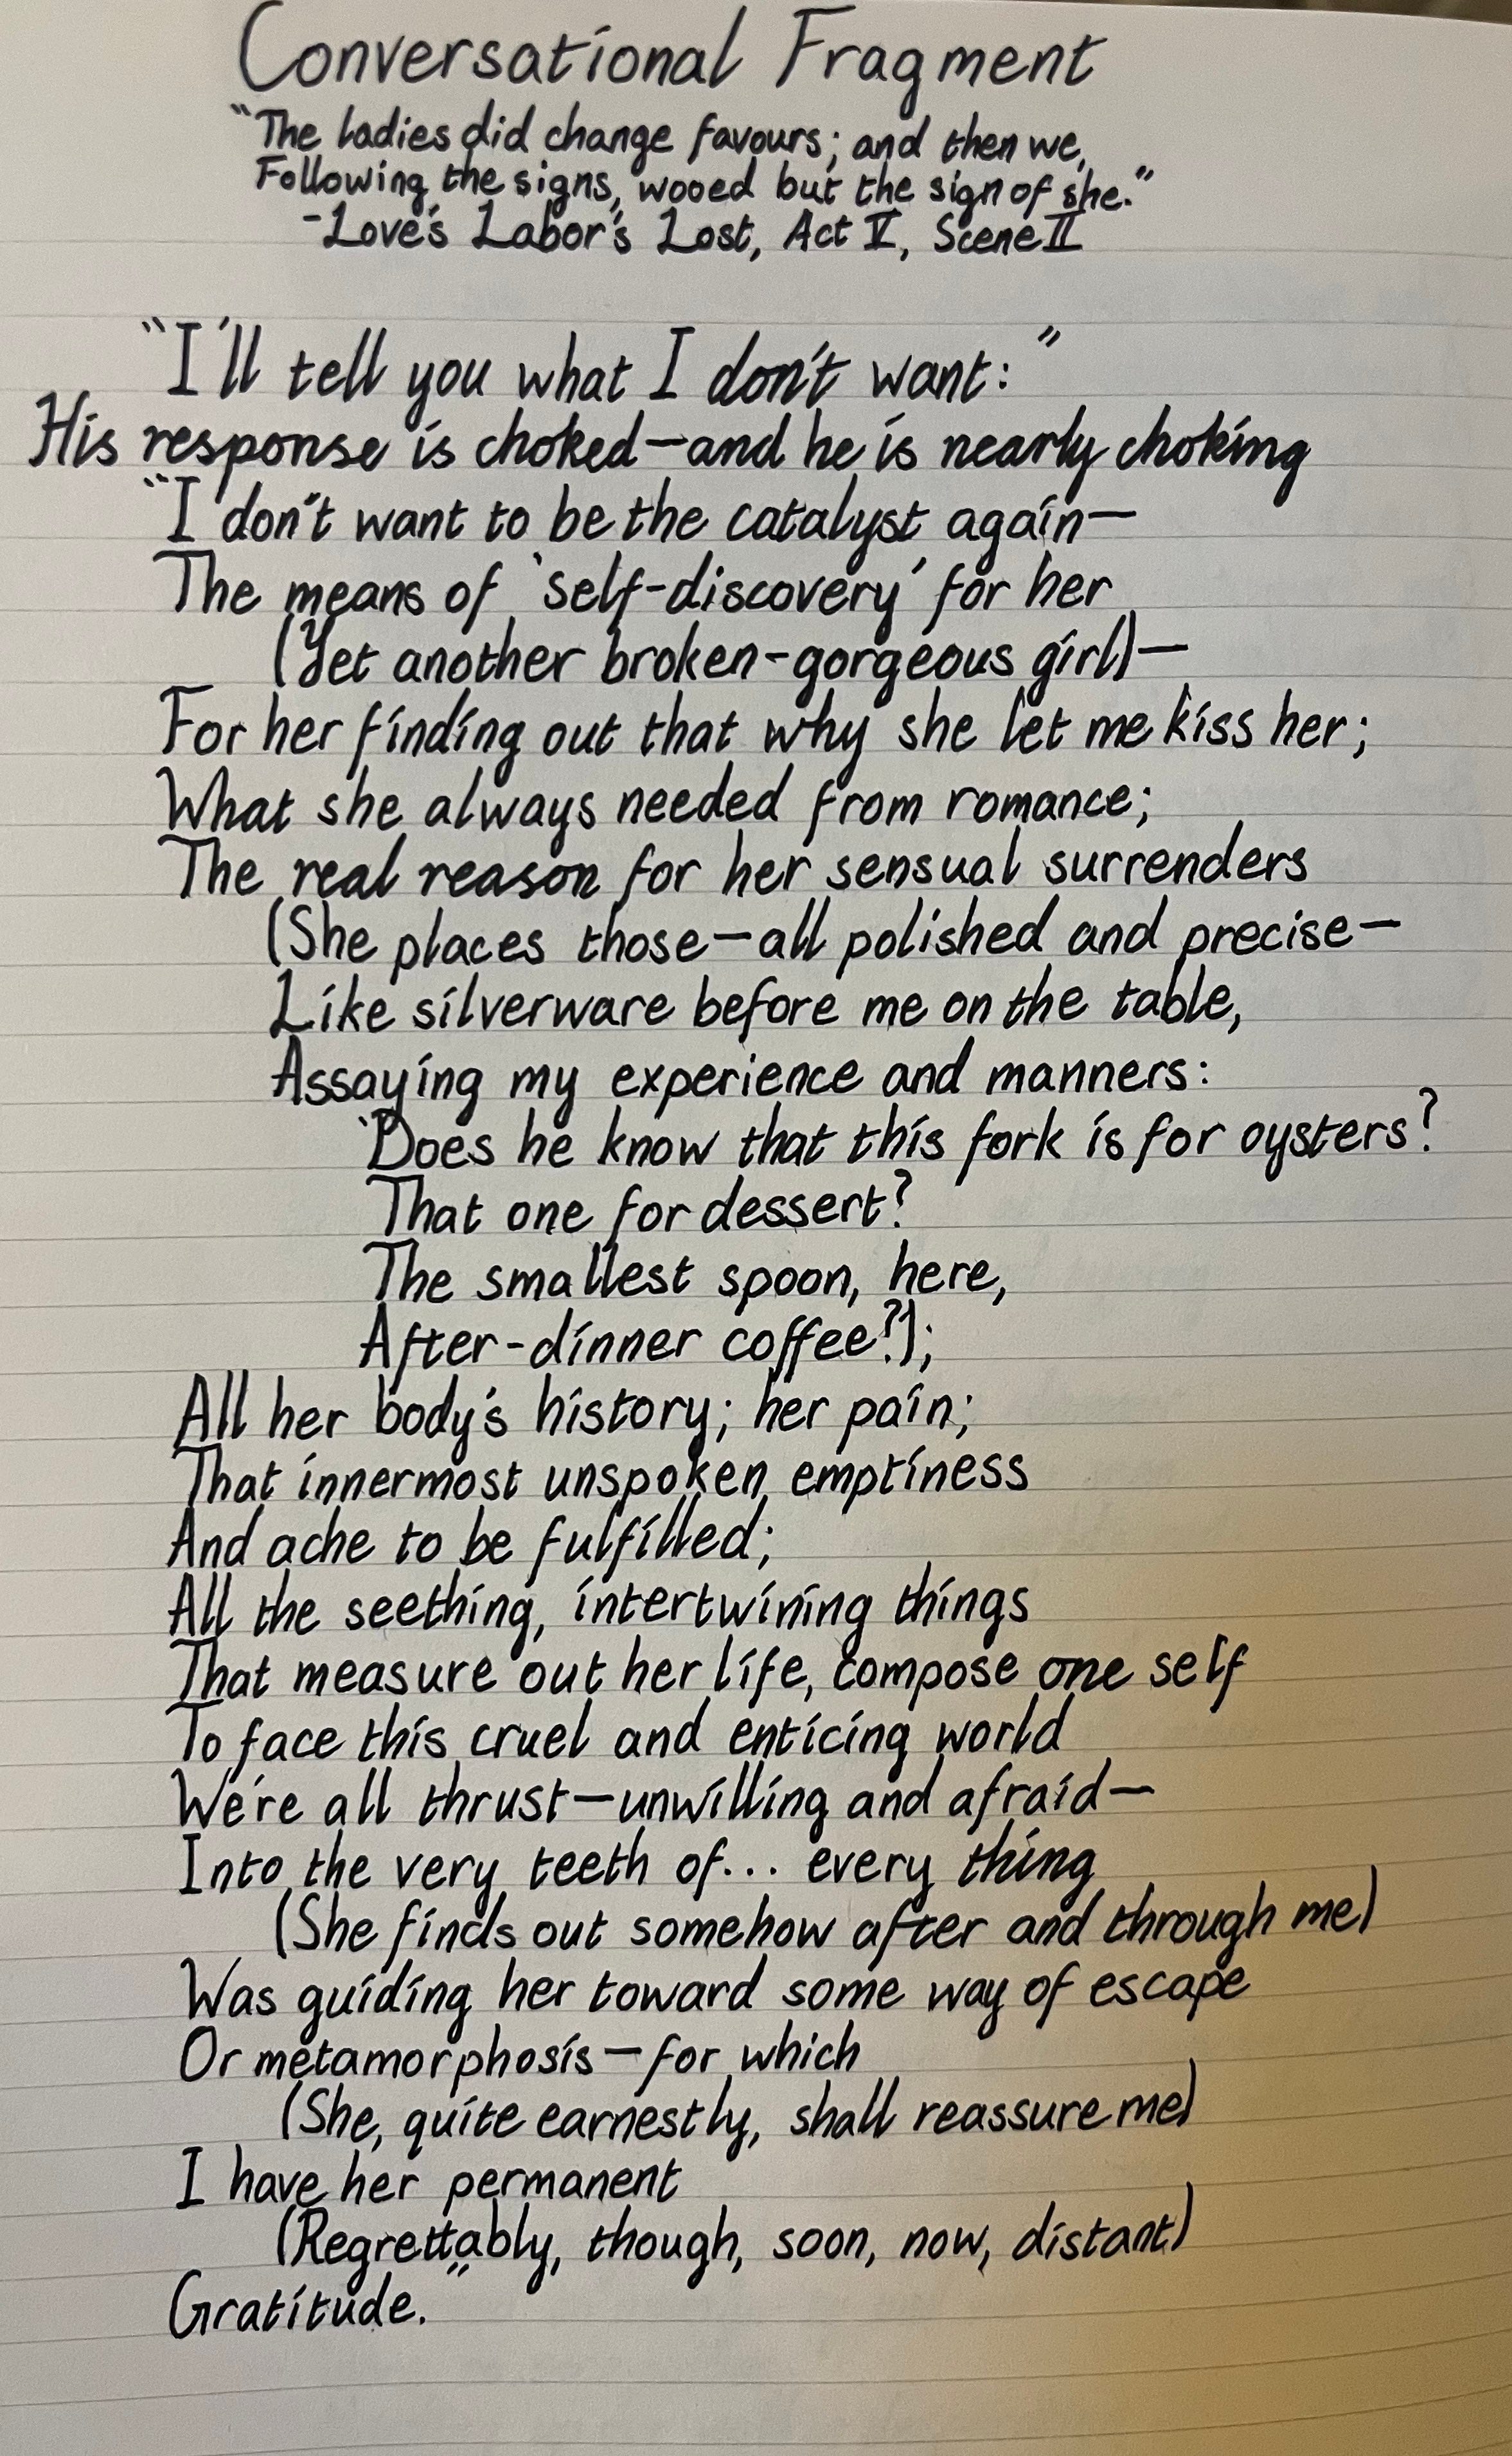 Conversational Fragment
"The ladies did change favours; and then we,
Following the signs, wooed but the sign of she."
-Love's Labor's Lost, Act V, Scene II
"I'll tell you what I don't want:"
His response is choked—and he is nearly choking
"I don't want to be the catalyst again—
The means of 'self-discovery' for her
(Yet another broken-gorgeous girl)—
For her finding out that why she let me kiss her;
What she always needed from romance;
The real reason for her sensual surrenders
(She places those—all polished and precise—
Like silverware before me on the table,
Assaying my experience and manners:
'Does he know that this fork is for oysters?
That one for dessert?
The smallest spoon, here,
After-dinner coffee?');
All her body's history; her pain;
That innermost unspoken emptiness
And ache to be fulfilled;
All the seething, intertwining things
That measure out her life, compose one self
To face this cruel and enticing world
We're all thrust—unwilling and afraid—
Into the very teeth of... every thing
(She finds out somehow after and through me)
Was guiding her toward some way of escape
Or metamorphosis—for which
(She, quite earnestly, shall reassure me)
I have her permanent
(Regrettably, though, soon, now, distant)
Gratitude."